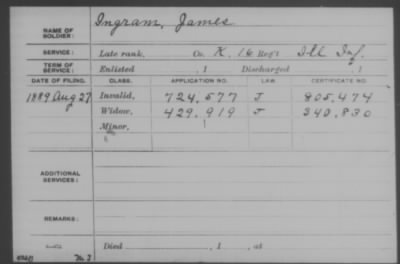 NAME OF SOLDIER: Ingram, James
SERVICE: Late rank, Co. K, 16 Reg't Ill Inf.
TERM OF SERVICE: Enlisted , 1 Discharged , 1
DATE OF FILING. CLASS. APPLICATION NO. LAW. CERTIFICATE NO.
1889 Aug 27 Invalid, 724,577 J 805,474
Widow, 429,919 J 340,830
Minor,
ADDITIONAL SERVICES:
REMARKS:
Died , 1 , at